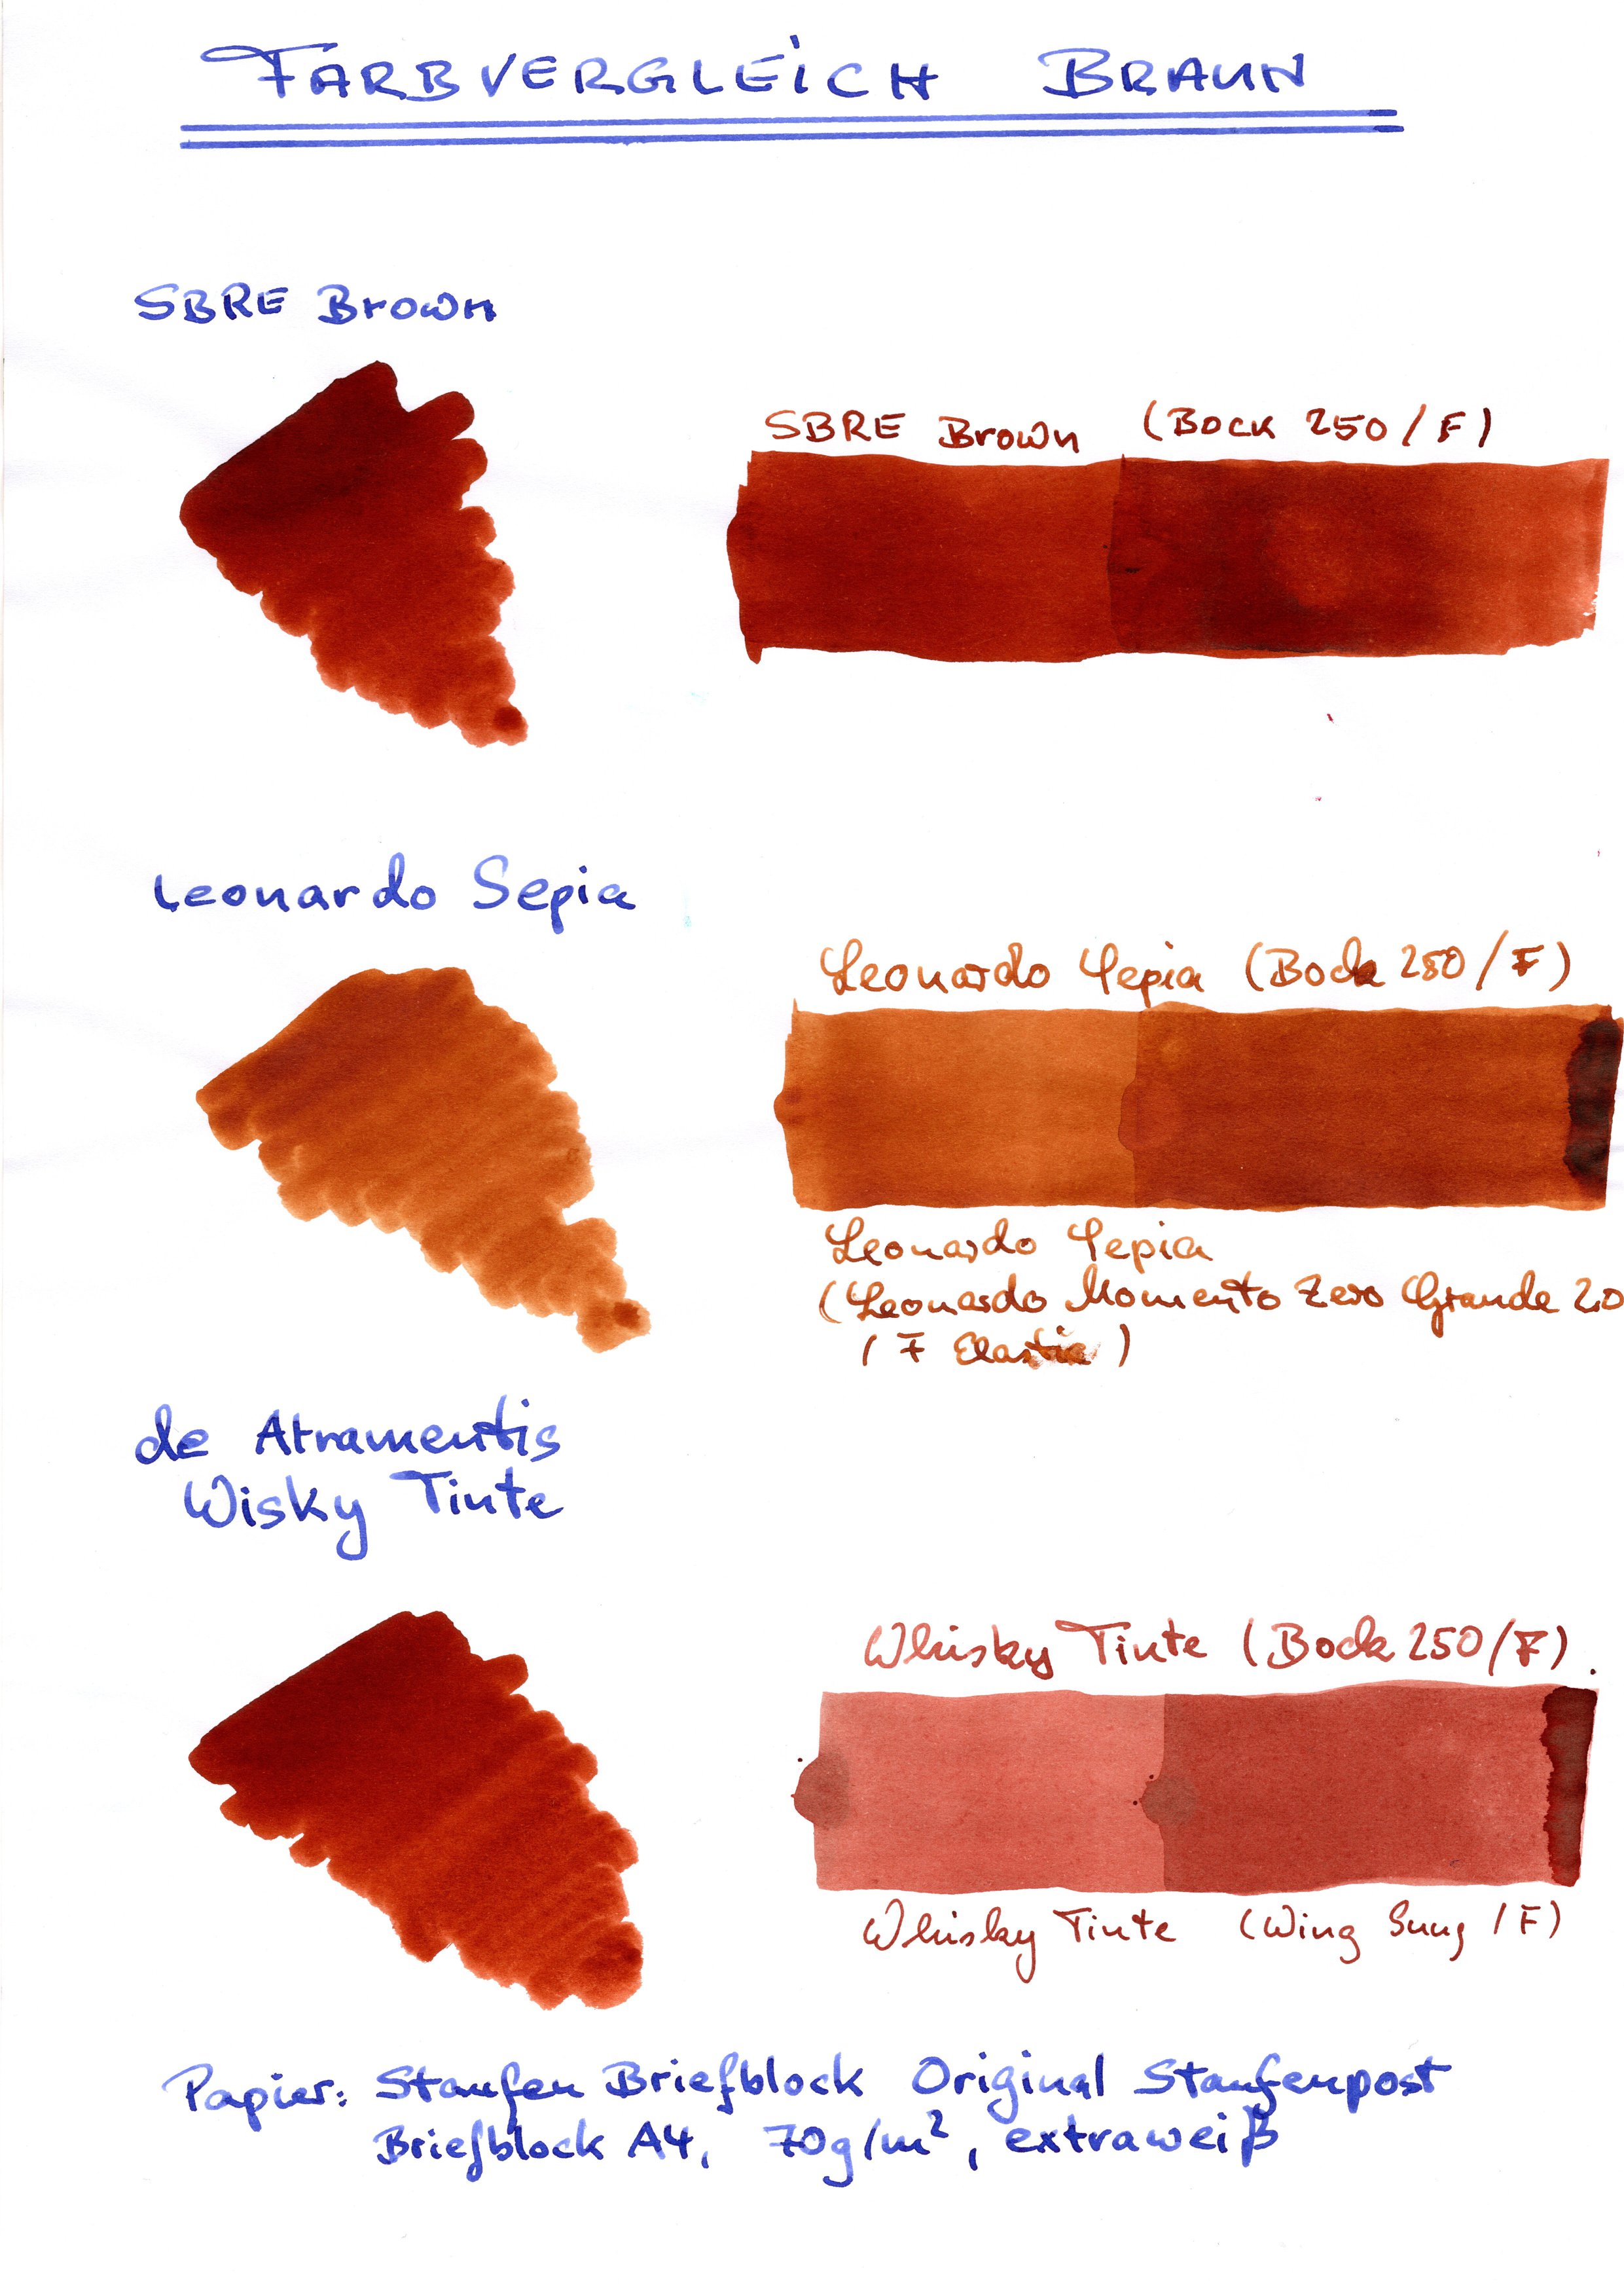 FARBVERGLEICH BRAUN
SBRE Brown
SBRE Brown (Bock 250/F)
Leonardo Sepia
Leonardo Sepia (Bock 250/F)
Leonardo Sepia
(Leonardo Momento Zero Grande 2.0
/ F Elastic)
de Atramentis
Wisky Tinte
Whisky Tinte (Bock 250/F)
Whisky Tinte (Wing Sung / F)
Papier: Staufen Briefblock Original Staufenpost
Briefblock A4, 70g/m², extraweiß